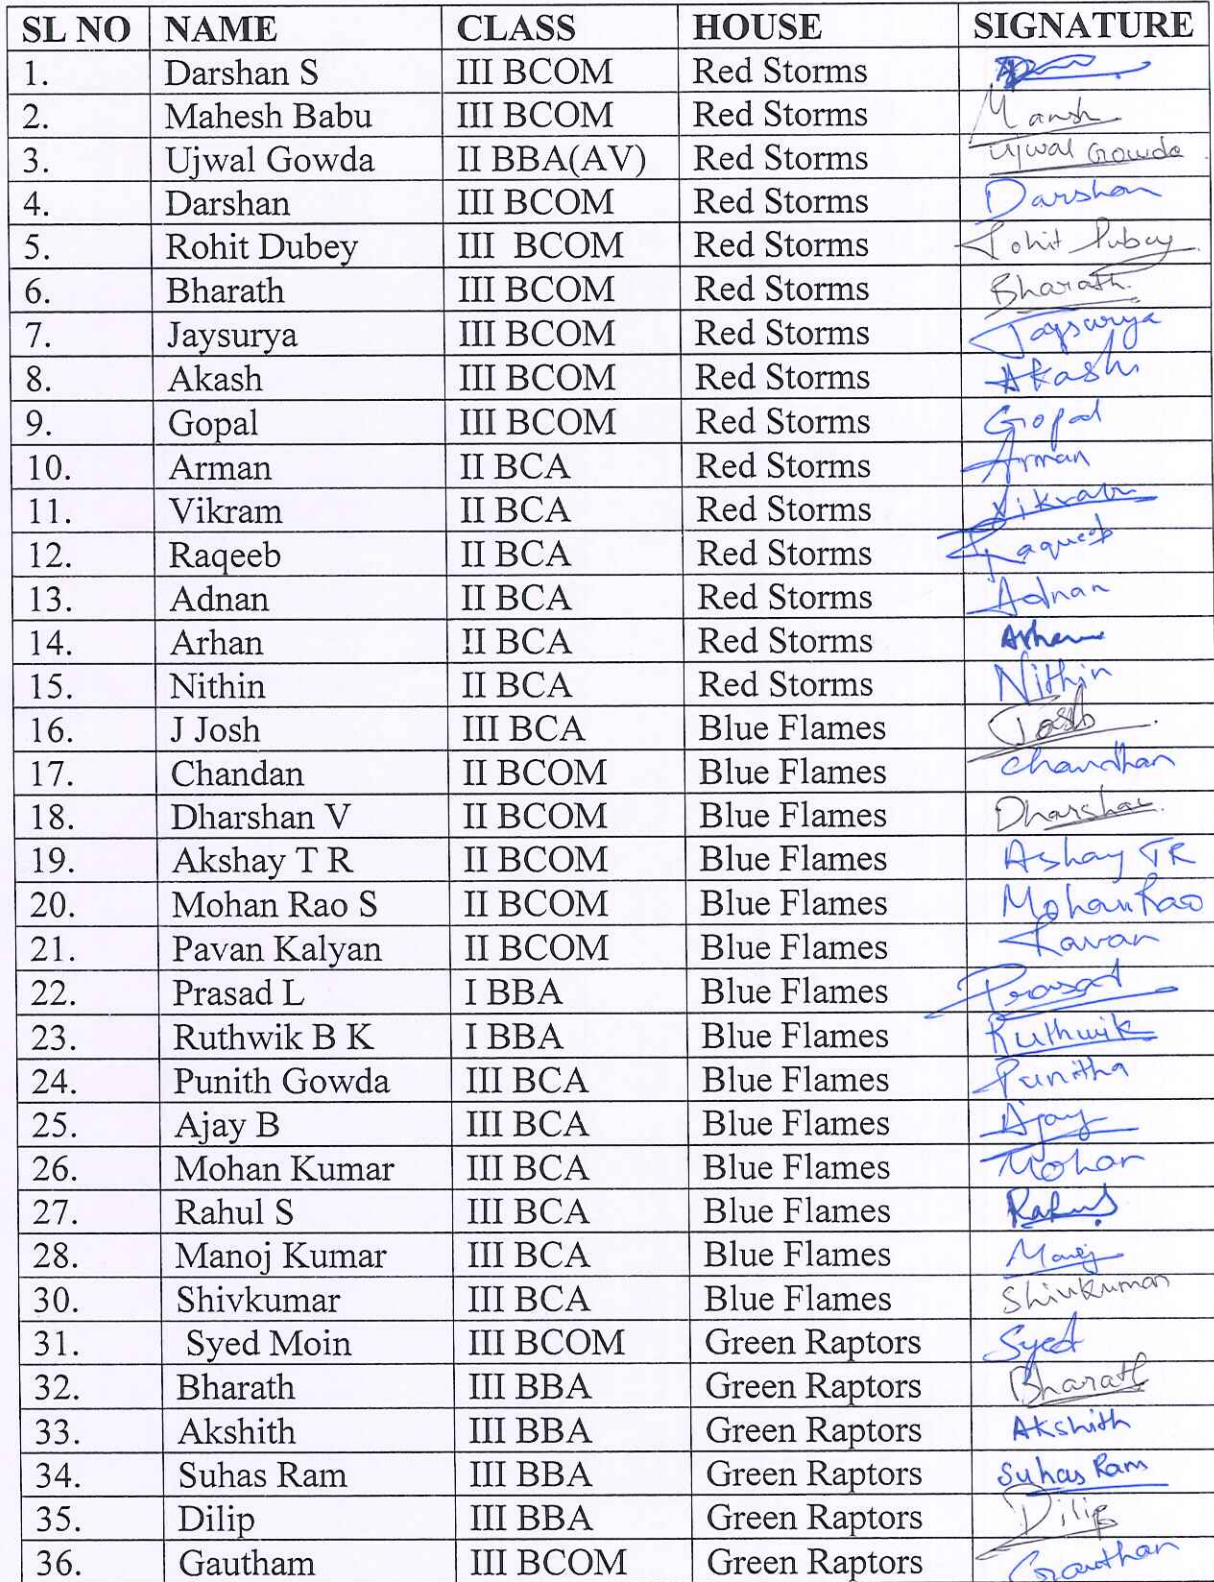 SL NO NAME CLASS HOUSE SIGNATURE
1. Darshan S III BCOM Red Storms
2. Mahesh Babu III BCOM Red Storms
3. Ujwal Gowda II BBA(AV) Red Storms Ujwal Gowda
4. Darshan III BCOM Red Storms Darshan
5. Rohit Dubey III BCOM Red Storms Rohit Dubey
6. Bharath III BCOM Red Storms Bharath.
7. Jaysurya III BCOM Red Storms Jaysurya
8. Akash III BCOM Red Storms Akash
9. Gopal III BCOM Red Storms Gopal
10. Arman II BCA Red Storms Arman
11. Vikram II BCA Red Storms Vikram
12. Raqeeb II BCA Red Storms Raqueeb
13. Adnan II BCA Red Storms Adnan
14. Arhan II BCA Red Storms
15. Nithin II BCA Red Storms Nithin
16. J Josh III BCA Blue Flames Josh
17. Chandan II BCOM Blue Flames Chandhan
18. Dharshan V II BCOM Blue Flames Dharshan.
19. Akshay T R II BCOM Blue Flames Ashay TR
20. Mohan Rao S II BCOM Blue Flames Mohan Rao
21. Pavan Kalyan II BCOM Blue Flames Pavan
22. Prasad L I BBA Blue Flames Prasad
23. Ruthwik B K I BBA Blue Flames Ruthwik
24. Punith Gowda III BCA Blue Flames Punitha
25. Ajay B III BCA Blue Flames Ajay
26. Mohan Kumar III BCA Blue Flames Mohan
27. Rahul S III BCA Blue Flames Rahul S
28. Manoj Kumar III BCA Blue Flames Manoj
30. Shivkumar III BCA Blue Flames Shivkumar
31. Syed Moin III BCOM Green Raptors Syed
32. Bharath III BBA Green Raptors Bharath
33. Akshith III BBA Green Raptors Akshith
34. Suhas Ram III BBA Green Raptors Suhas Ram
35. Dilip III BBA Green Raptors Dilip
36. Gautham III BCOM Green Raptors Gauthan